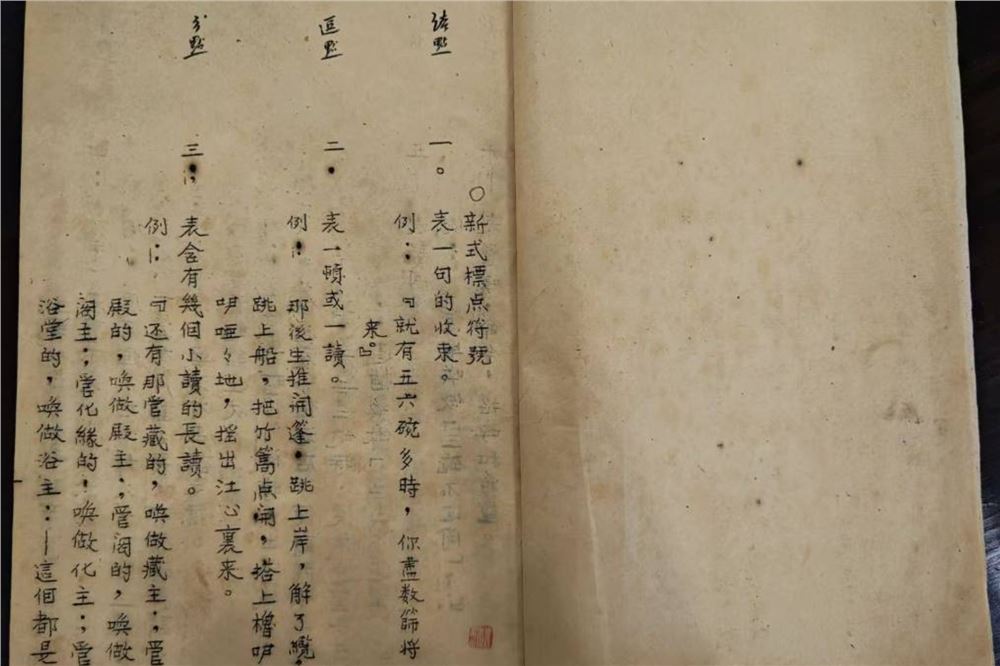 ○新式標点符號.
結點
一。表一句的收束。
例:『就有五六碗多時,你盡数篩将
来。』
逗點
二、表一頓或一讀。
例:那後生推開篷,跳上岸,解了纜,
跳上船,把竹篙点開,搭上櫓咿
咿哑々地,摇出江心裏来。
分點
三;表含有幾個小讀的長讀。
例:『还有那管藏的,喚做藏主;管
殿的,喚做殿主;管阁的,喚做
阁主;管化緣的,喚做化主;管
浴堂的,喚做浴主:—這個都是